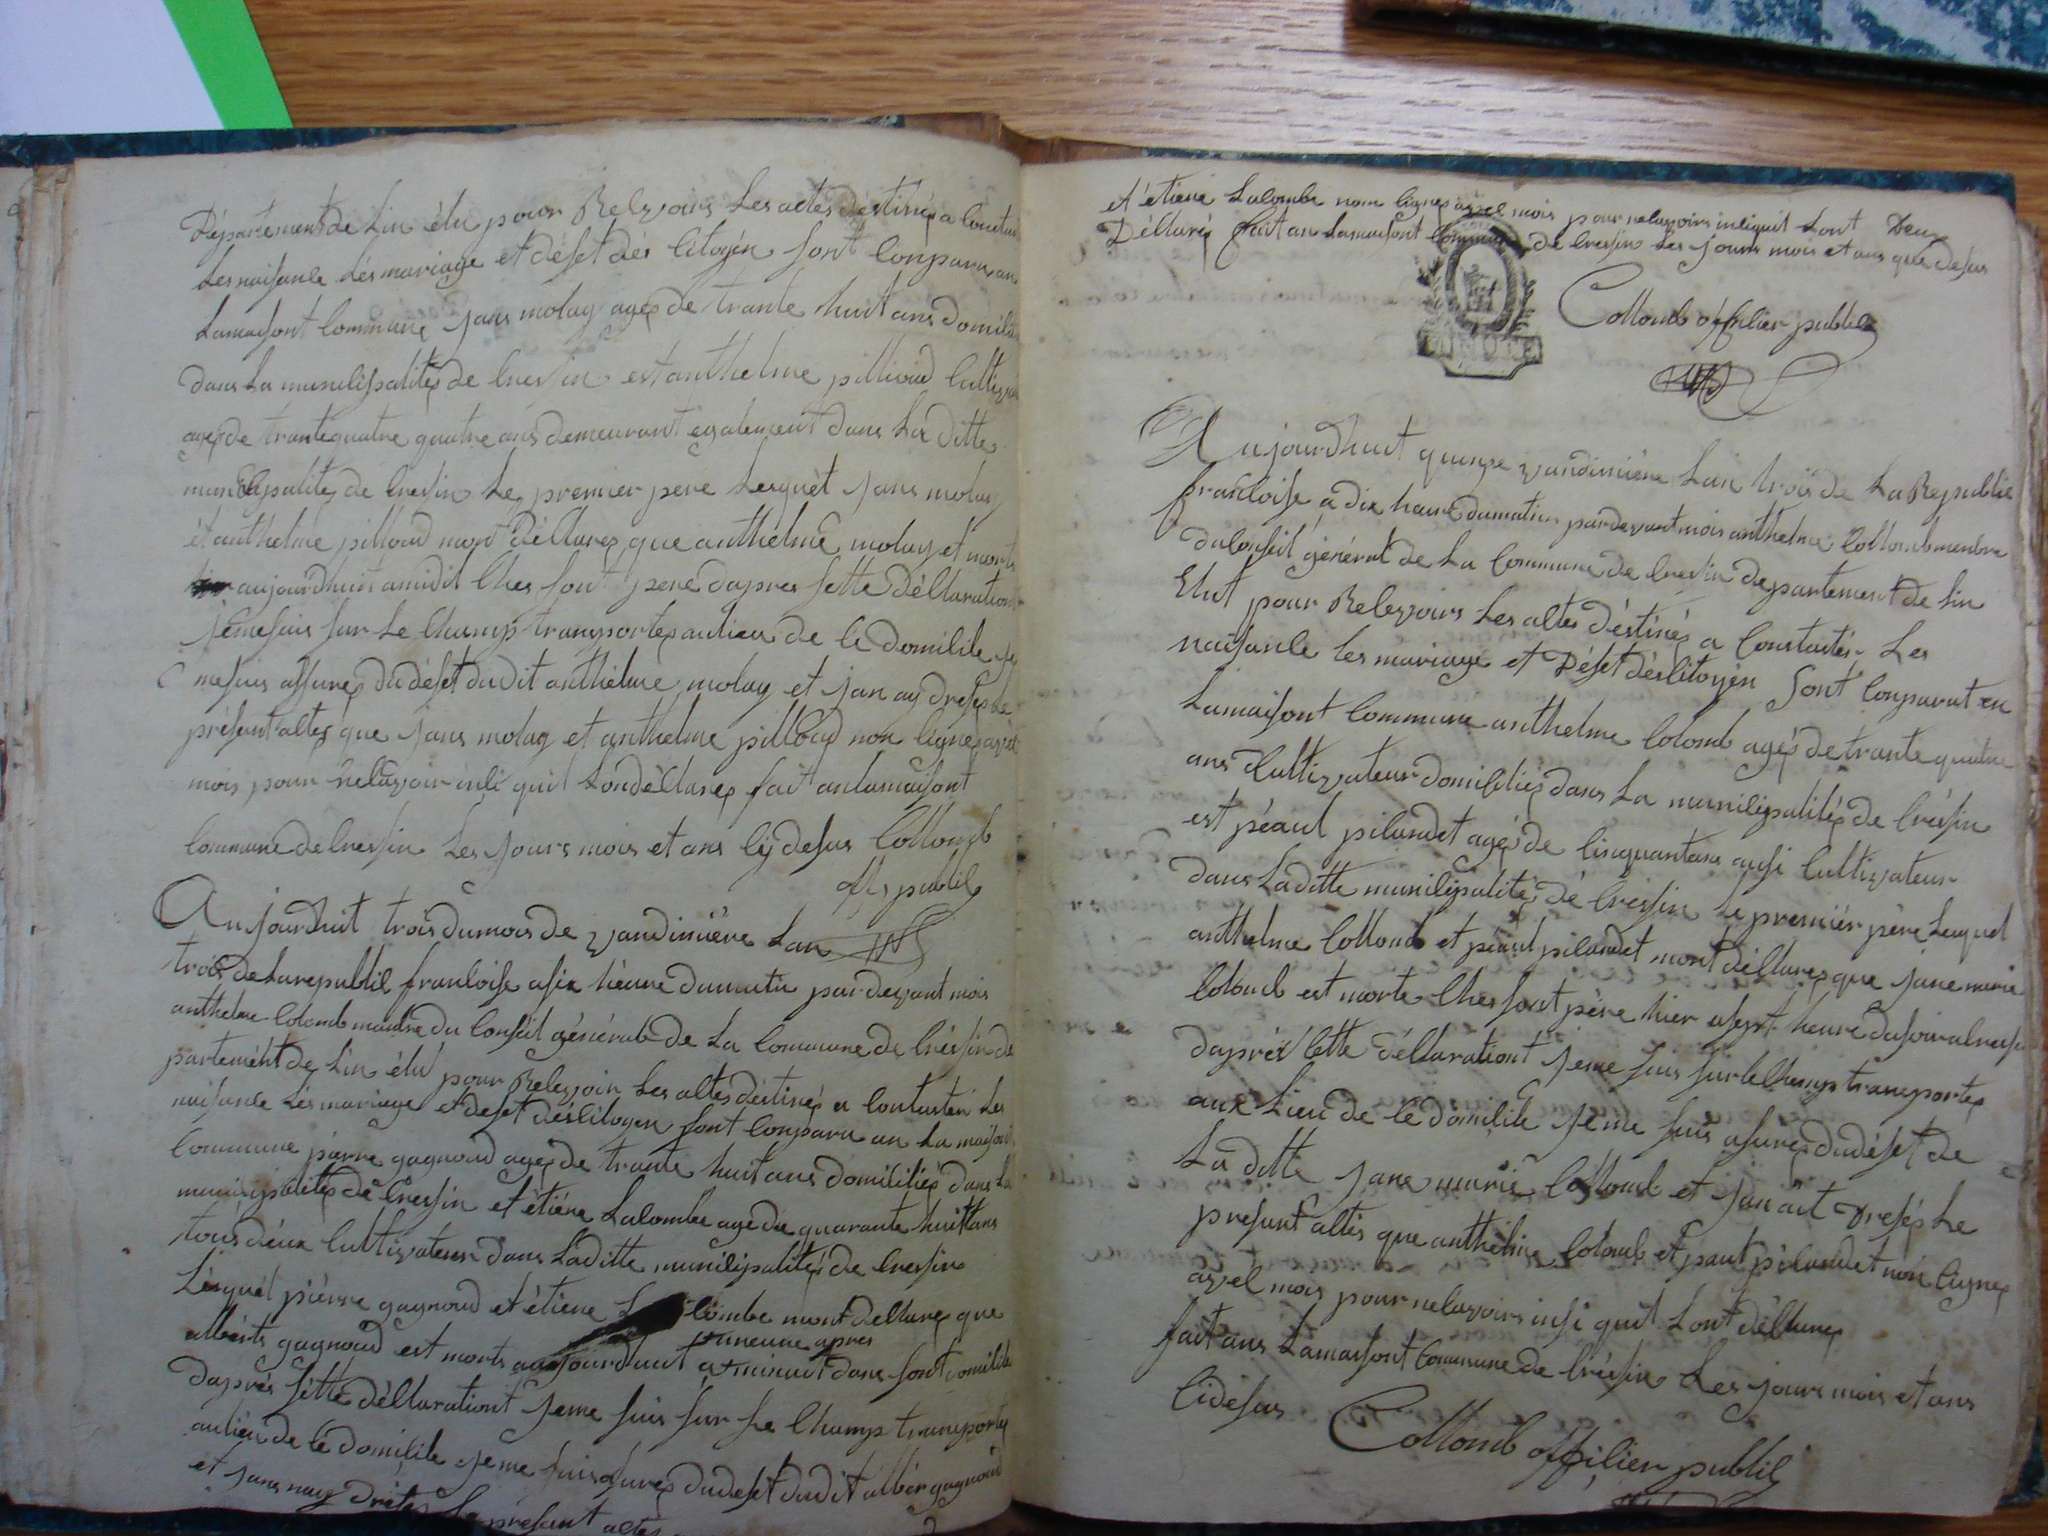 Département de Lin élu pour Relevoir Les actes déstinés a Constat
Les naisance Les mariage et déset des Citoyén sont Conparu an
Lamaisont Commune Jans molay agés de trante huit ans domili
dans La munilipalités de Cressin est anthelme pillioud Cultiv
agés de trante quatre quatre ans demeurant egalement dans La ditte
munilipalités de Cressin Le premier pere Lesquét Jans molay
ét anthelme pilloud mont Déllarés que anthélme molay et morts
aujourdhuit amidit Ches sont pere dapres sette Déllaration
Jemesuis sur Le Champs transportés aulieu de le domilile Je
mesuis assurés du déset dudit anthélme molay et Jan ay dresés Le
présent altes que Jans molay et anthelme pilloud non Lignés avet
mois pour nelavoir insi quil Lon déllarés fait anlamaisont
Commune de Cressin Les Jours mois et ans Cy desus Collomb
Offis publil
Aujourdhuit trois dumois de vandimiére Lan
trois de Larepublil franloise asix héure dumatin pardevant mois
anthelme Colomb manbre du Conseil général de La Commune de Créssin dé
partemént de Lin élu pour Relevoir Les altes déstinés a Contasten Les
naisance Les mariage et deset désLitoyen sont Conparu an La maisont
Commune piérre gagnoud agés de trante huit ans domiliés dans La
munilipalités de Cressin et étiéne Lalombe age de quarante huittans
tous déux Cultivateur dans Laditte munilipalités de Cressin
Lésquét piérre gagnoud et étiene Lombe mont dellarés que
una eure apres
albérts gagnoud est morts aujourdhuit a minuit dans sont domilile
Daprés sétte déllarationt Jeme suis sur Le Champs transportés
aulieu de le domilile Jeme suis asurés du deset dudit albér gagnoud
et Jans nay Le présant altes
et étiene Lalombe non Lignes avel mois pour nelavoirs insiquil Lont
Déllarés fait an Lamaisont Commune de Cressin Les Jours mois et ans que desus
Collomb offilier publil
Aujourdhuit quinze vandimiére Lan trois de La Republil
franloise a dix heure dumatin pardevant mois anthelme Collomb menbre
du Conseil général de La Commune de Cressin departement de Lin
Elut pour Relevoirs Les altes déstinés a Constatér Les
naisance Les mariage et Déset désLitoyén sont Conparut en
Lamaisont Commune anthelme Colomb agés de trante quatre
ans Cultivateur domiliés dans La munilipalités de Créssin
est péaul pilandet agés de Cinquantans ausi Cultivateur
dans Laditte munilipalités dé Cressin Le premiér pére Lesquel
anthelme Collomb et péaul pilandet mont déllarés que Jane marie
Colomb est morte Ches sont pére hier asept heure dusoir
daprés Cette déllarationt Jeme suis sur le Champs transportés
aux Lieu de le domilile Jeme suis asurés du déset de
La ditte Jane marie Collomb et Jan ait Dresés Le
present altes que anthélme Colomb et paul pilandet non Lignés
avel mois pour nelavoirs insi quil Lont déllarés
fait ans Lamaisont Commune de Créssin Les Jours mois et ans
Cidesus
Collomb offilier publil